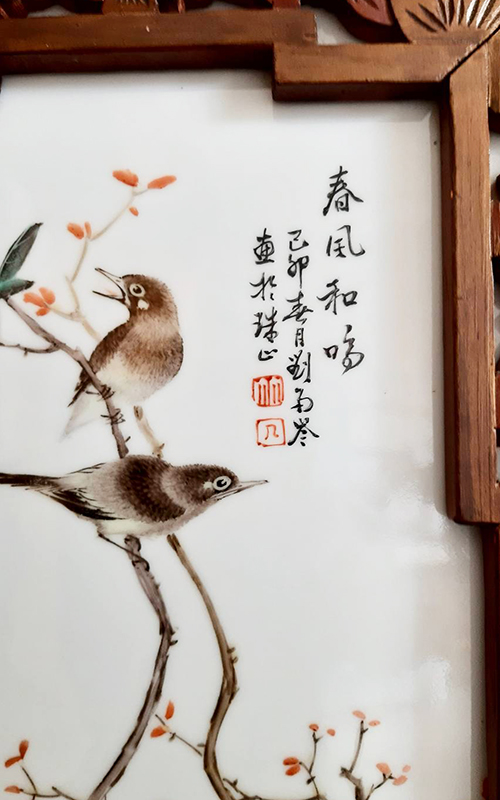 春風和鳴
己卯春月劉雨岑
画於珠山